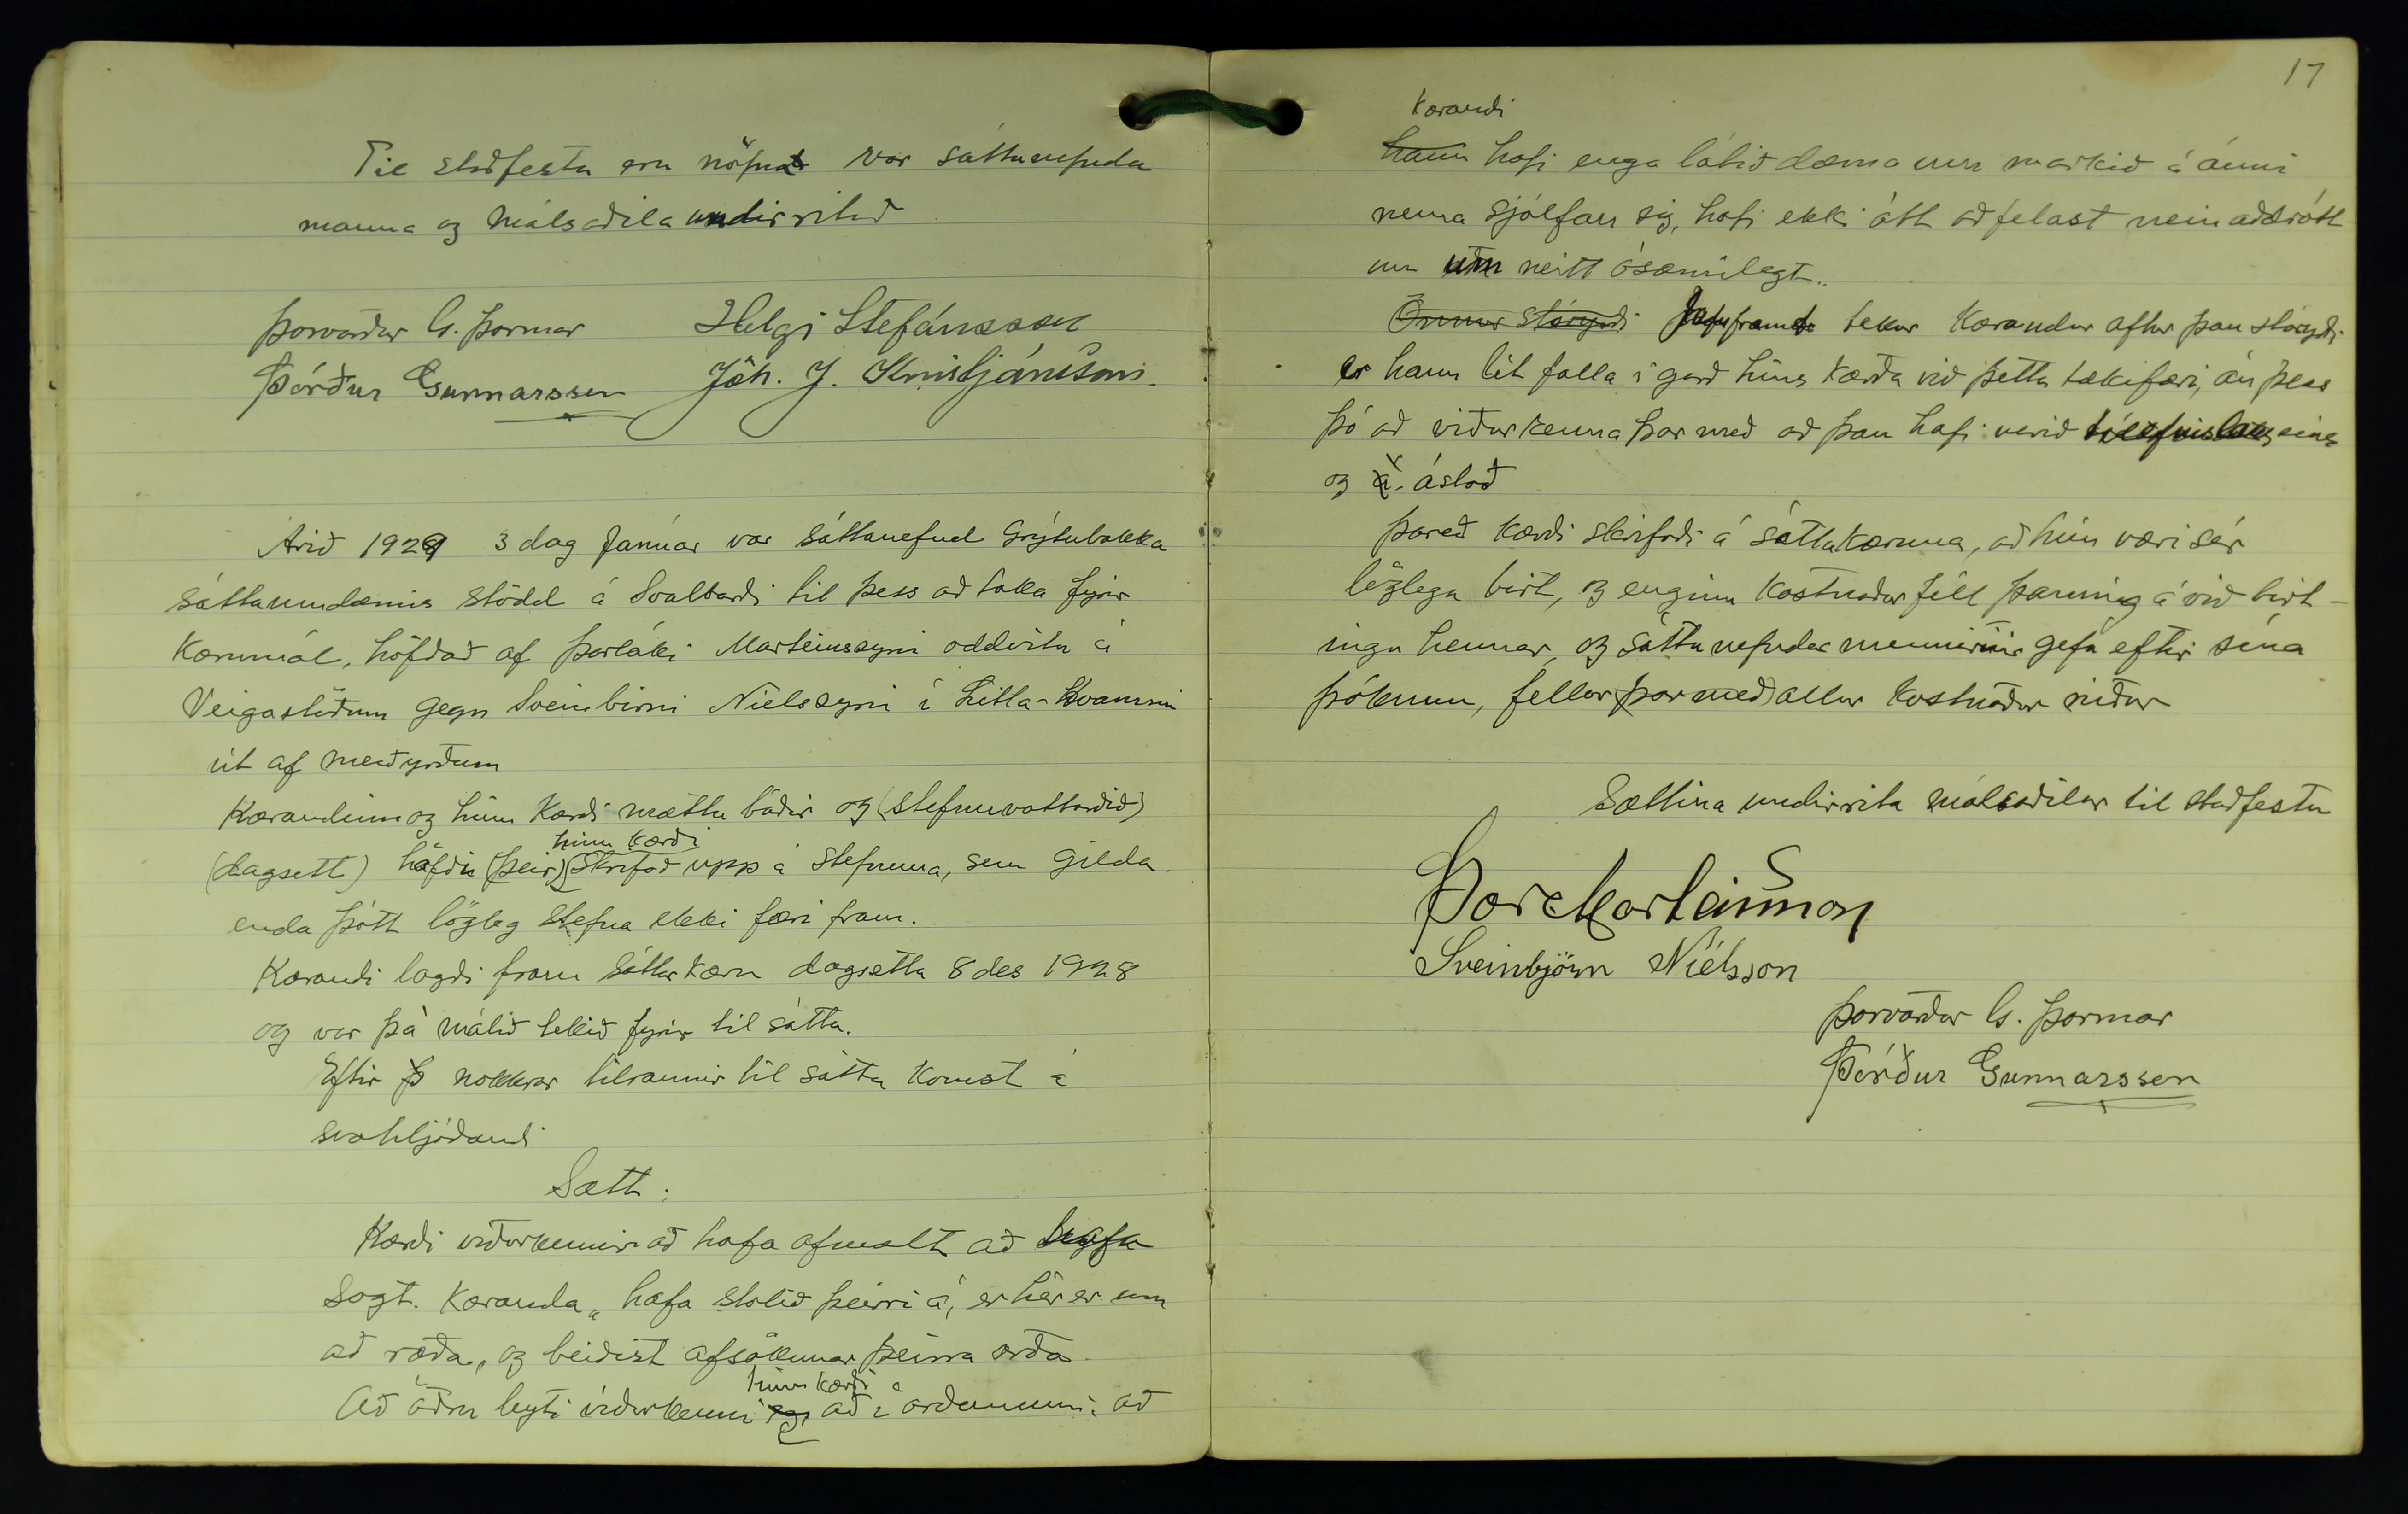 Til staðfestu eru nöfn vor sáttanefnda
manna og málsaðila undirrituð
Þorvarður G. Þormar Helgi Stefánsson
Þórður Gunnarsson Jóh. J. Kristjánsson.
Árið 1929 3 dag Janúar var sáttanefnd Grýtubakka
sáttaumdæmis stödd á Svalbarði til þess að taka fyrir
kærumál, höfðað af Þorláki Marteinssyni oddvita á
Veigastöðum gegn Sveinbirni Níelssyni í Litla-Hvammi
út af meiðyrðum
Kærandinn og hinn kærði mættu báðir og (stefnuvottorðið)
hinn kærði
(dagsett) hafði (þeir) skrifað upp á stefnuna, sem gilda
enda þótt lögleg stefna ekki færi fram.
Kærandi lagði fram sáttakæru dagsetta 8 des 1928
og var þá málið tekið fyrir til sátta.
Eftir nokkrar tilraunir til sátta komst á
svohljóðandi
Sætt.
Kærði viðurkennir að hafa ofmælt að hafa
sagt. Kæranda „hafa stolið þeirri á, er hér er um
að ræða„ og beiðist afsökunar þeirra orða
hinn kærði
Að öðru leyti viðurkenni eg að í orðunum: að
17
Kærandi
hann hafi enga látið dæma um markið á ánni
nema sjálfan sig, hafi ekki átt að felast nein aðdrótt
un um neitt ósæmilegt.
Önnur stóryrði Jafnframt tekur Kærandur aftur þau stóryrði
er hann lét falla í garð hins kærða við þetta tækifæri, án þess
þó að viðurkenna þar með að þau hafi verið tilefnislaus eins
og á. ástóð
Þareð kærði skrifaði á sáttakæruna, að hún væri sér
löglega birt, og enginn kostnaður féll þannig á við birt-
ingu hennar, og sáttanefndar mennirnir gefa eftir sína
þóknun, fellur (þar með) allur kostnaður niður
Sættina undirrita málsaðilar til staðfestu
Þorl Marteinsson
Sveinbjörn Níelsson
Þorvarður G. Þormar
Þórður Gunnarsson